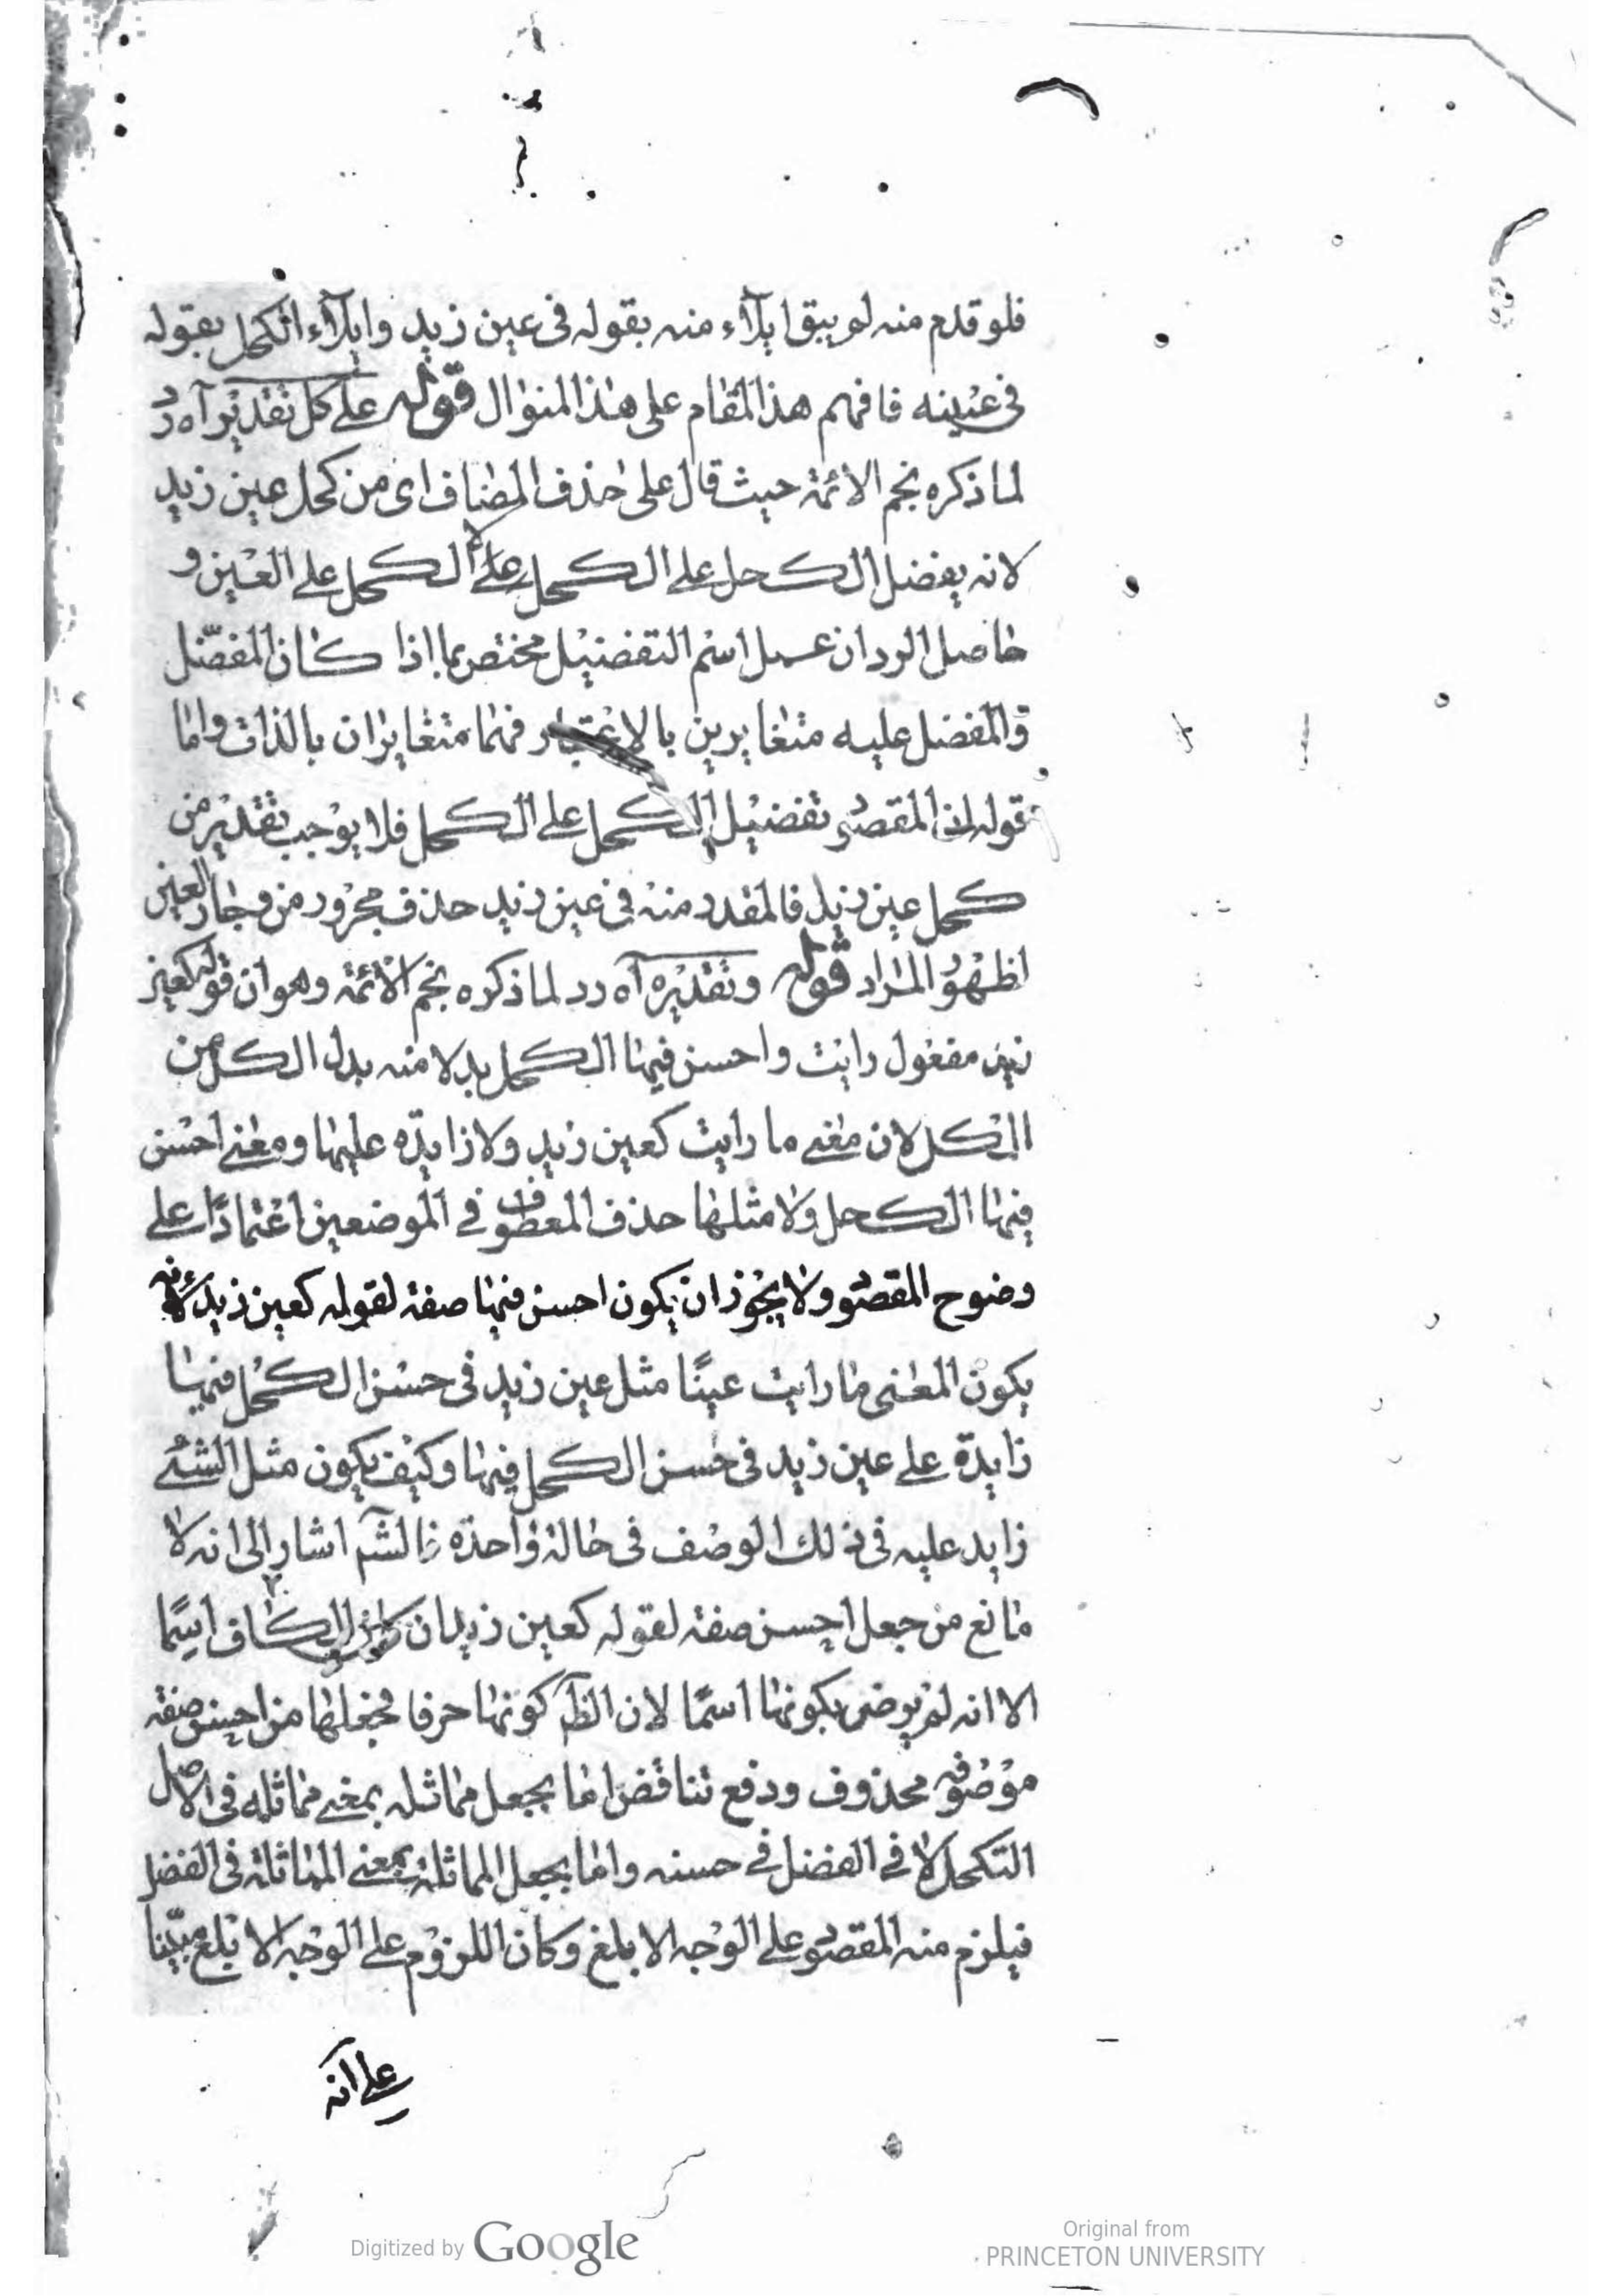 فلو قدم منه لم يبق ابدآء منه بقوله فى عين زيد وابدآء الكحل بقوله
فى عينه فافهم هذا المقام على هذا المنوال قوله على كل تقدير آه رد
لما ذكره نجم الائمة حيث قال على حذف المضاف اى من كحل عين زيد
لانه يفضل الكحل على الكحل لا الكحل على العين و
حاصل الرد ان عمل اسم التفضيل مختص بما اذا كان المفضل
والمفضل عليه متغايرين بالاعتبار فهما متغايران بالذات واما
قوله لان المقصود تفضيل الكحل على الكحل فلا يوجب تقدير من
كحل عين زيد فالمقدر منه فى عين زيد حذف مجرور من وجار العين
لظهور المراد قوله وتقديره آه رد لما ذكره نجم الائمة وهو ان قوله كعين
زيد مفعول رايت واحسن فيها الكحل بدلا منه بدل الكل من
الكل لان معنى ما رايت كعين زيد ولا زايدة عليها ومعنى احسن
فيها الكحل ولا مثلها حذف المعطوف فى الموضعين اعتمادًا على
وضوح المقصود ولا يجوز ان يكون احسن فيها صفة لقوله كعين زيد لانه
يكون المعنى ما رايت عينًا مثل عين زيد فى حسن الكحل فيها
زايدة على عين زيد فى حسن الكحل فيها وكيف يكون مثل الشئ
زايد عليه فى ذلك الوصف فى حالة واحدة فالشم اشار الى انه لا
مانع من جعل احسن صفة لقوله كعين زيد ان الكاف اسمًا
الا انه لم يرض بكونها اسمًا لان الظ كونها حرفا فجعلها من احسن صفة
موصوف محذوف ودفع تناقض اما بجعل مماثله بمعنى مماثله فى الاصل
التكحل لا فى الفضل فى حسنه واما بجعل المماثلة بمعنى المماثلة فى الفضل
فيلزم منه المقصود على الوجه الابلغ وكان اللزوم على الوجه الابلغ مبينا
على انه
Digitized by Google
Original from
PRINCETON UNIVERSITY